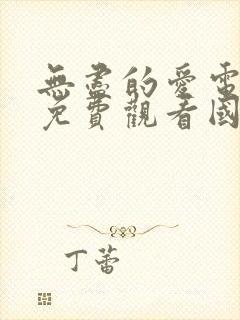 無盡的愛電
免費觀看國
丁蕾